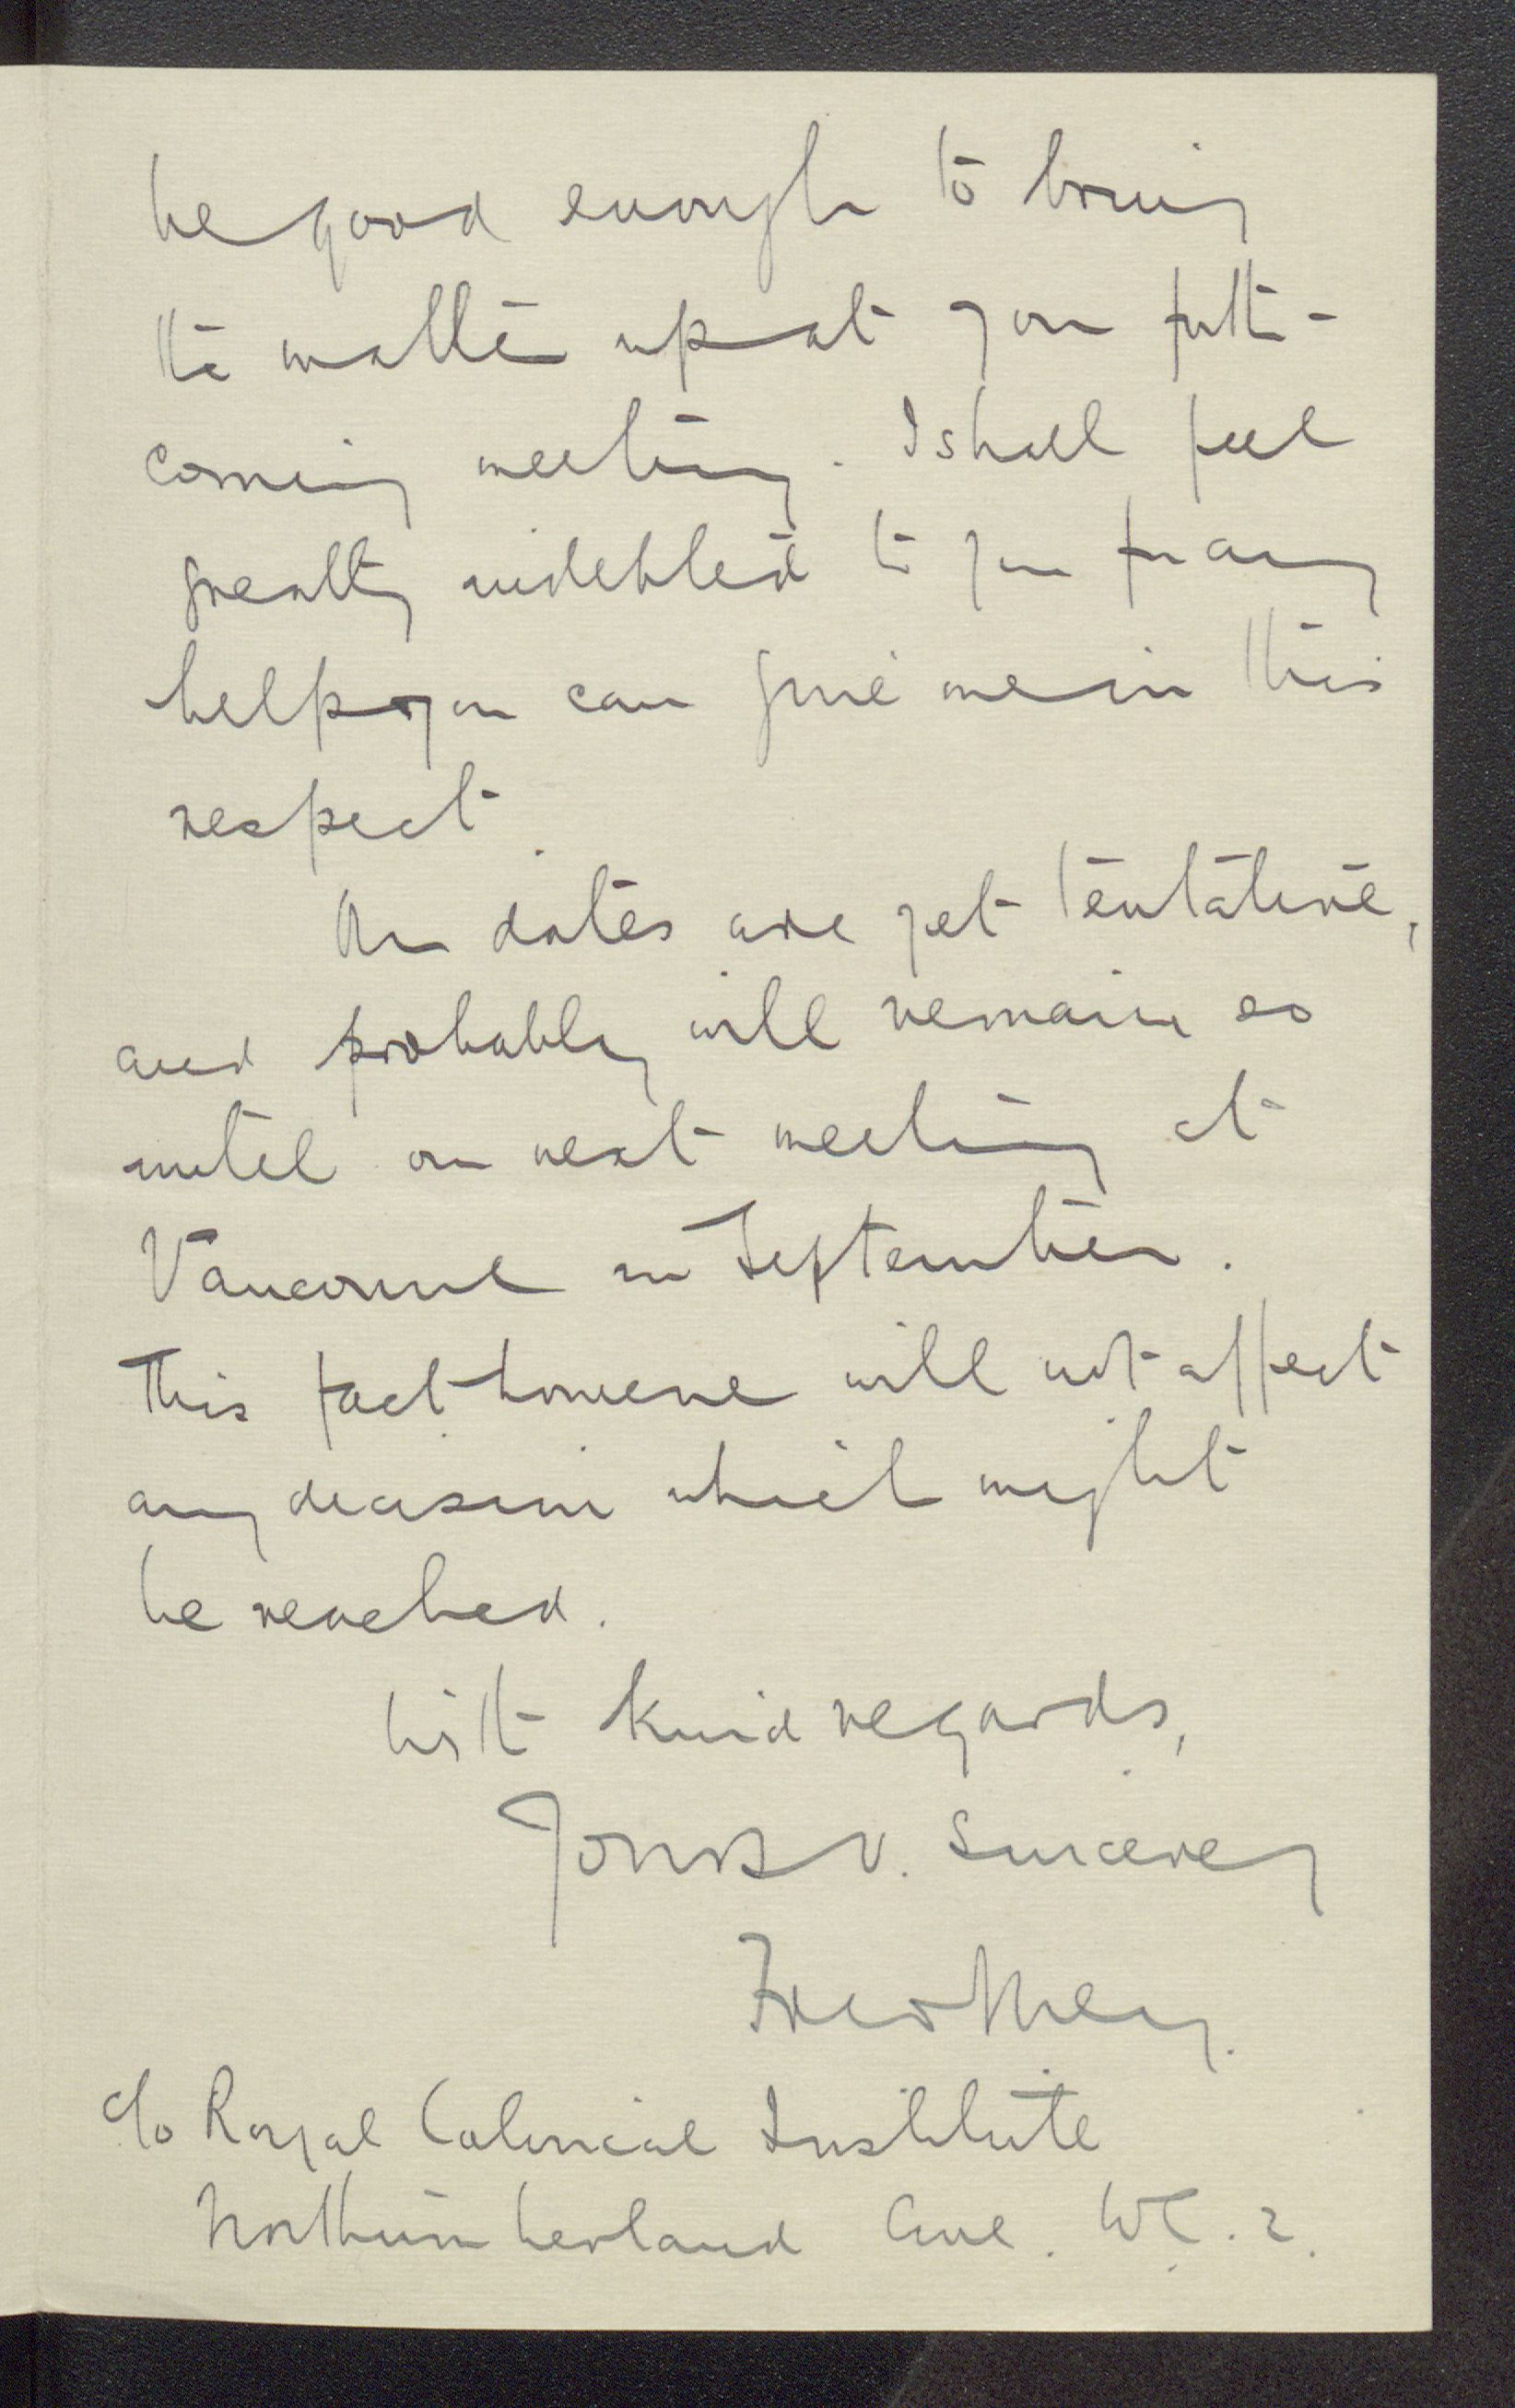 be good enough to bring
the matter up at your forth-
coming meeting. I shall feel
greatly indebted to you for any
help you can give me in this
respect.
Our dates are yet tentative,
and probably will remain so
until our next meeting at
Vancouver in September.
This fact however will not affect
any decision which might
be reached.
With kind regards,
Yours v. sincerely
Fred Ney.
c/o Royal Colonial Institute
Northumberland Ave. WC.2.